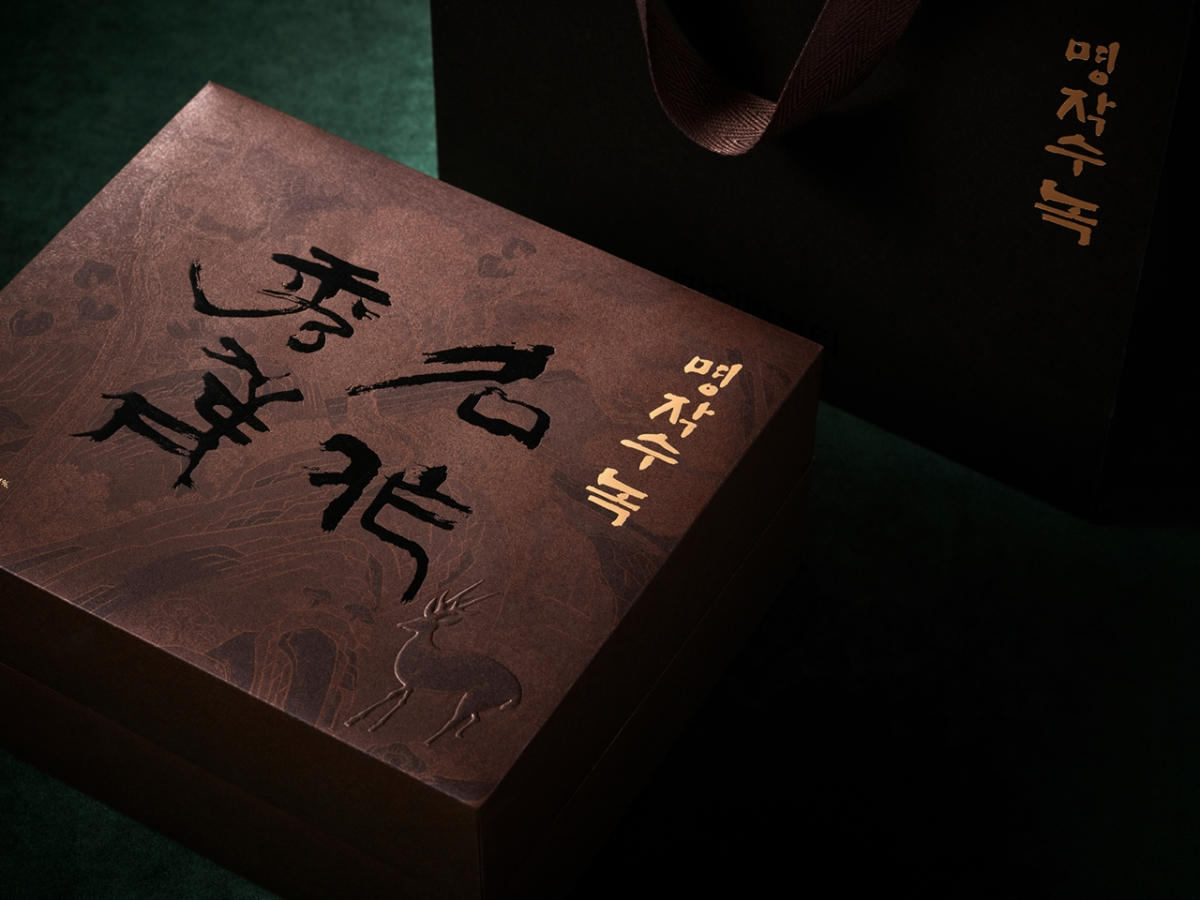 명작수녹
명작수녹
名作
秀